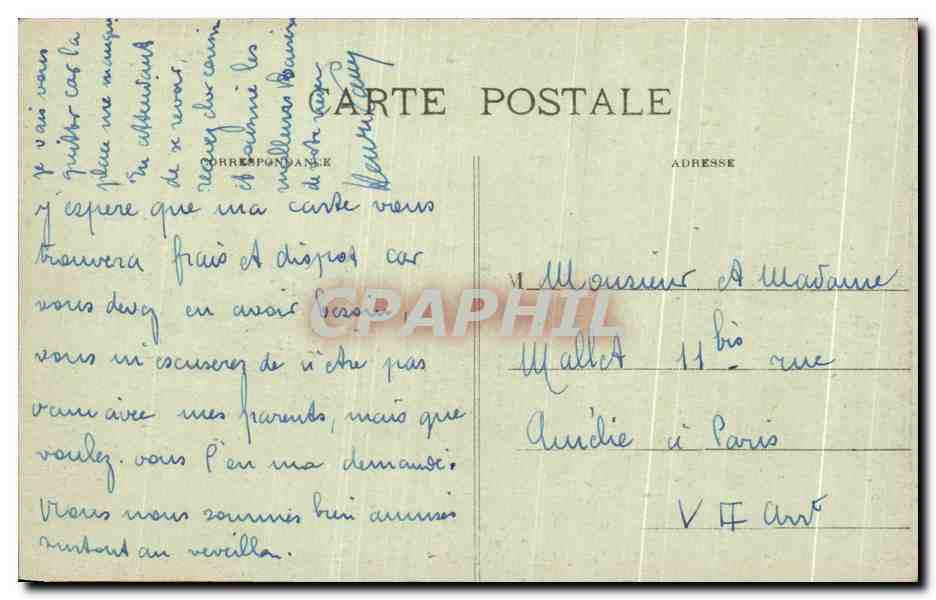 CARTE POSTALE
CORRESPONDANCE
ADRESSE
j'espere que ma carte vous
trouvera frais et dispot car
vous devez en avoir besoin,
vous m'escuserez de n'être pas
venu avec mes parents, mais que
voulez-vous l'on m'a demandé.
Nous nous sommes bien amusés
surtout au réveillon.
je vais vous
quitter car la
place me manque
En attendant
de se revoir,
recevez cher cousin
et cousine les
meilleurs Baisers
de votre
M. Monsieur et Madame
Mallet 11 bis rue
Amélie à Paris
VII Arrt
CPAPHIL